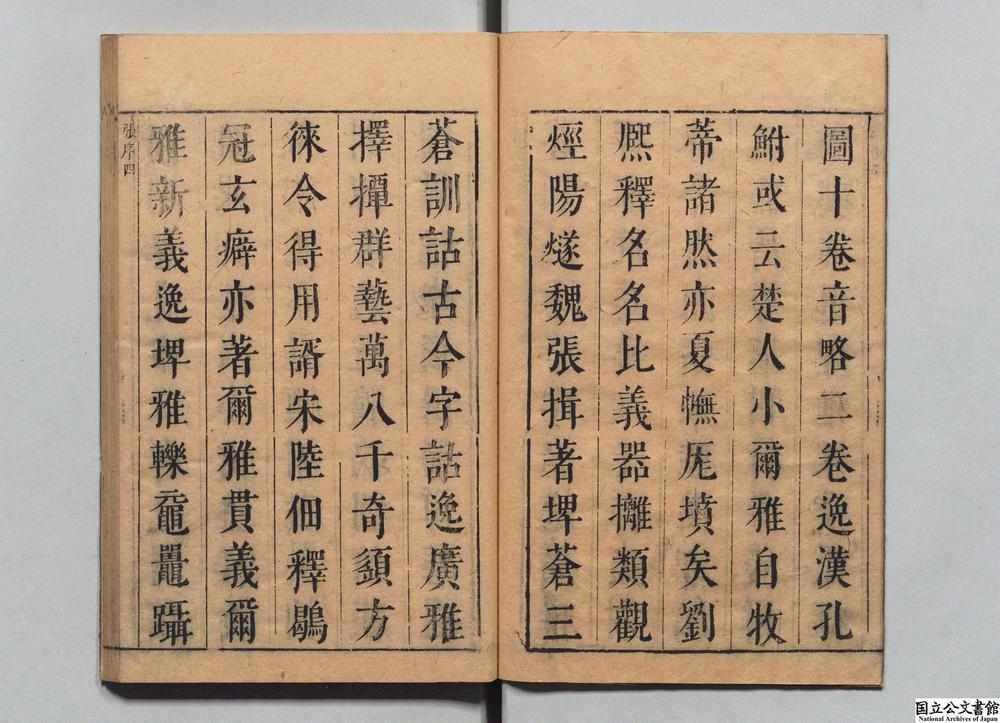 圖十卷音略二卷逸漢孔
鮒或云楚人小爾雅自牧
蒂諸然亦夏幠厖墳矣劉
熈釋名名比義器攡類觀
烴陽燧魏張揖著埤蒼三
蒼訓詁古今字詁逸廣雅
擇撢群藝萬八千奇頴方
徠令得用諝宋陸佃釋鷊
冠玄癖亦著爾雅貫義爾
雅新義逸埤雅轢黿鼉躡
張序四
国立公文書館
National Archives of Japan